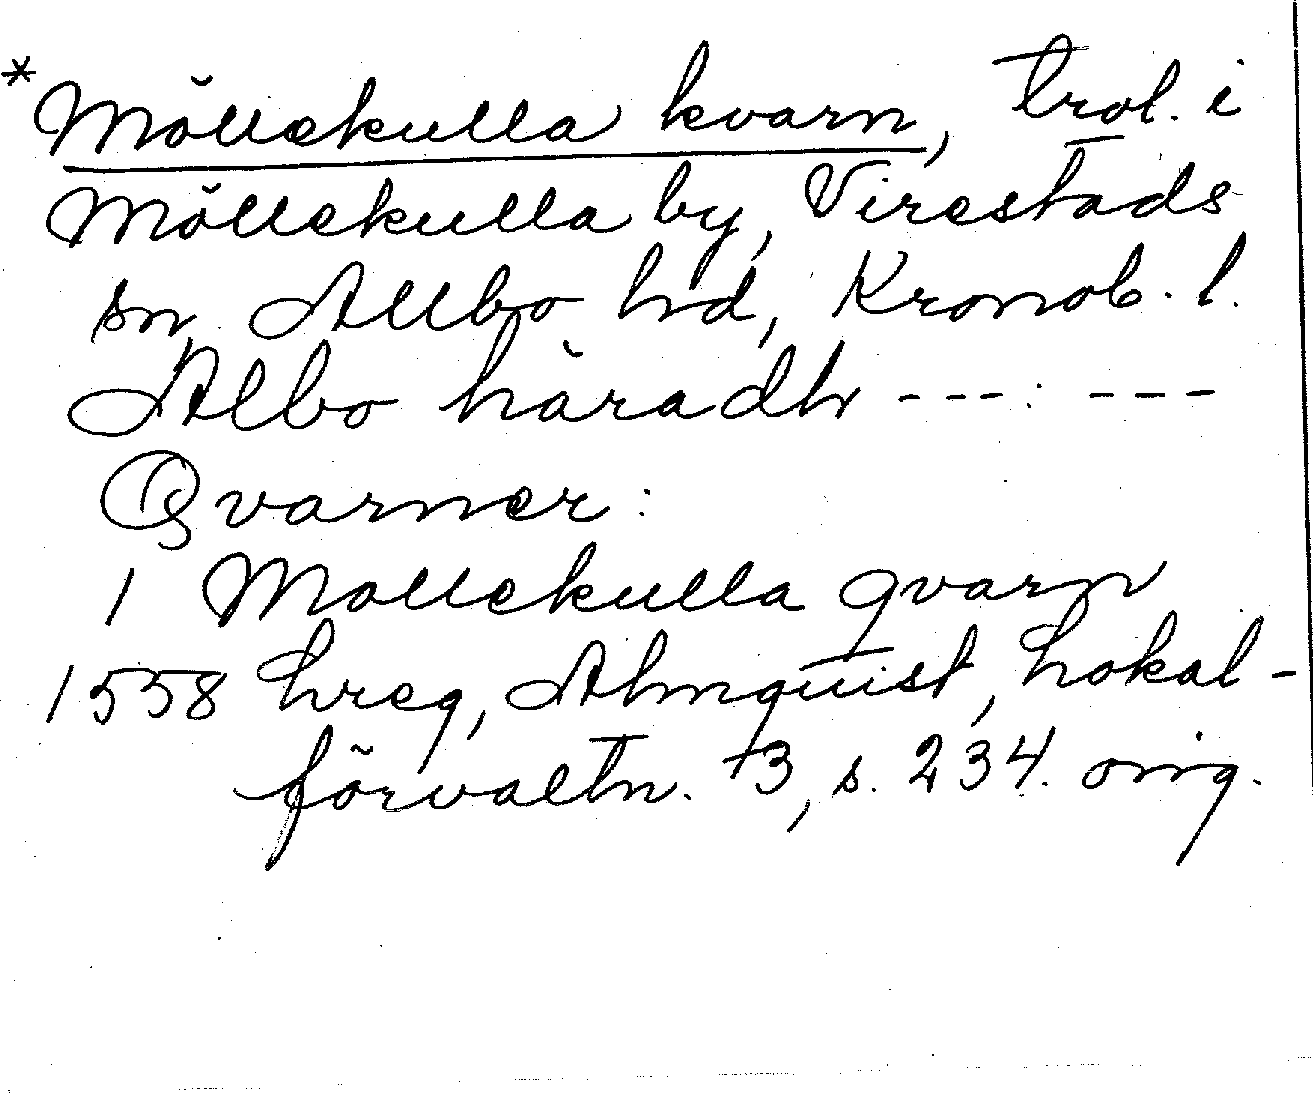 * Möllekulla kvarn, trol. i
Möllekulla by, Virestads
sn, Allbo hd, Kronob. l.
Albo häradh ---: ---
Qvarner:
1 Mollekulla qvarn
1558 hreg, Almquist, Lokal-
förvaltn. +3, s. 234. orig.